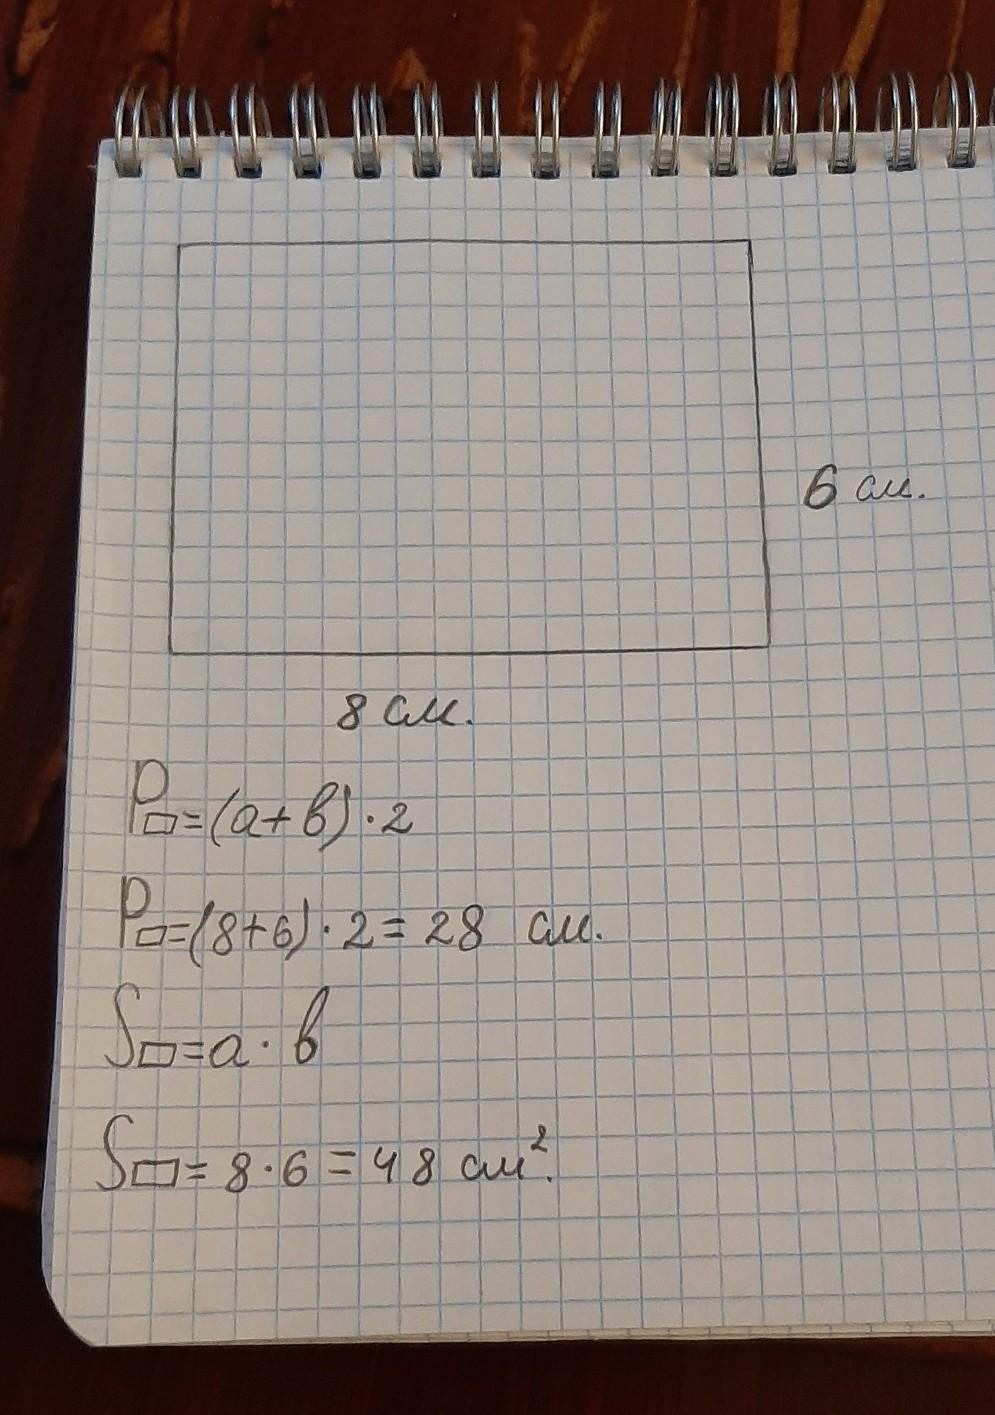 6 см.
8 см.
P▭=(a+b)·2
P▭=(8+6)·2=28 см.
S▭=a·b
S▭=8·6=48 см².